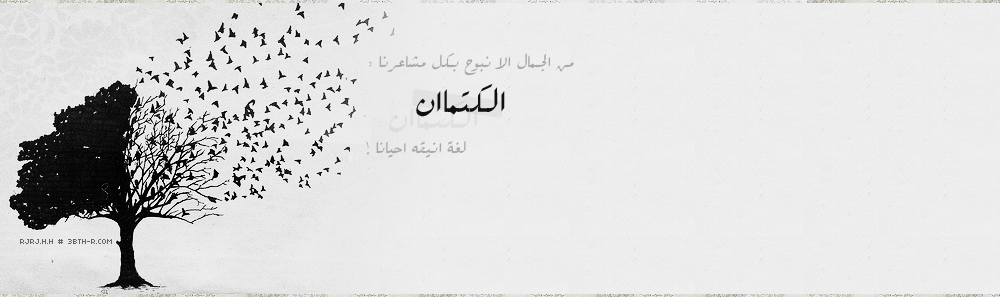 من الجمال الا نبوح بكل مشاعرنا :
الكتماان
لغة انيقه احيانا !
RJRJ.H.H # 3BTH-R.COM